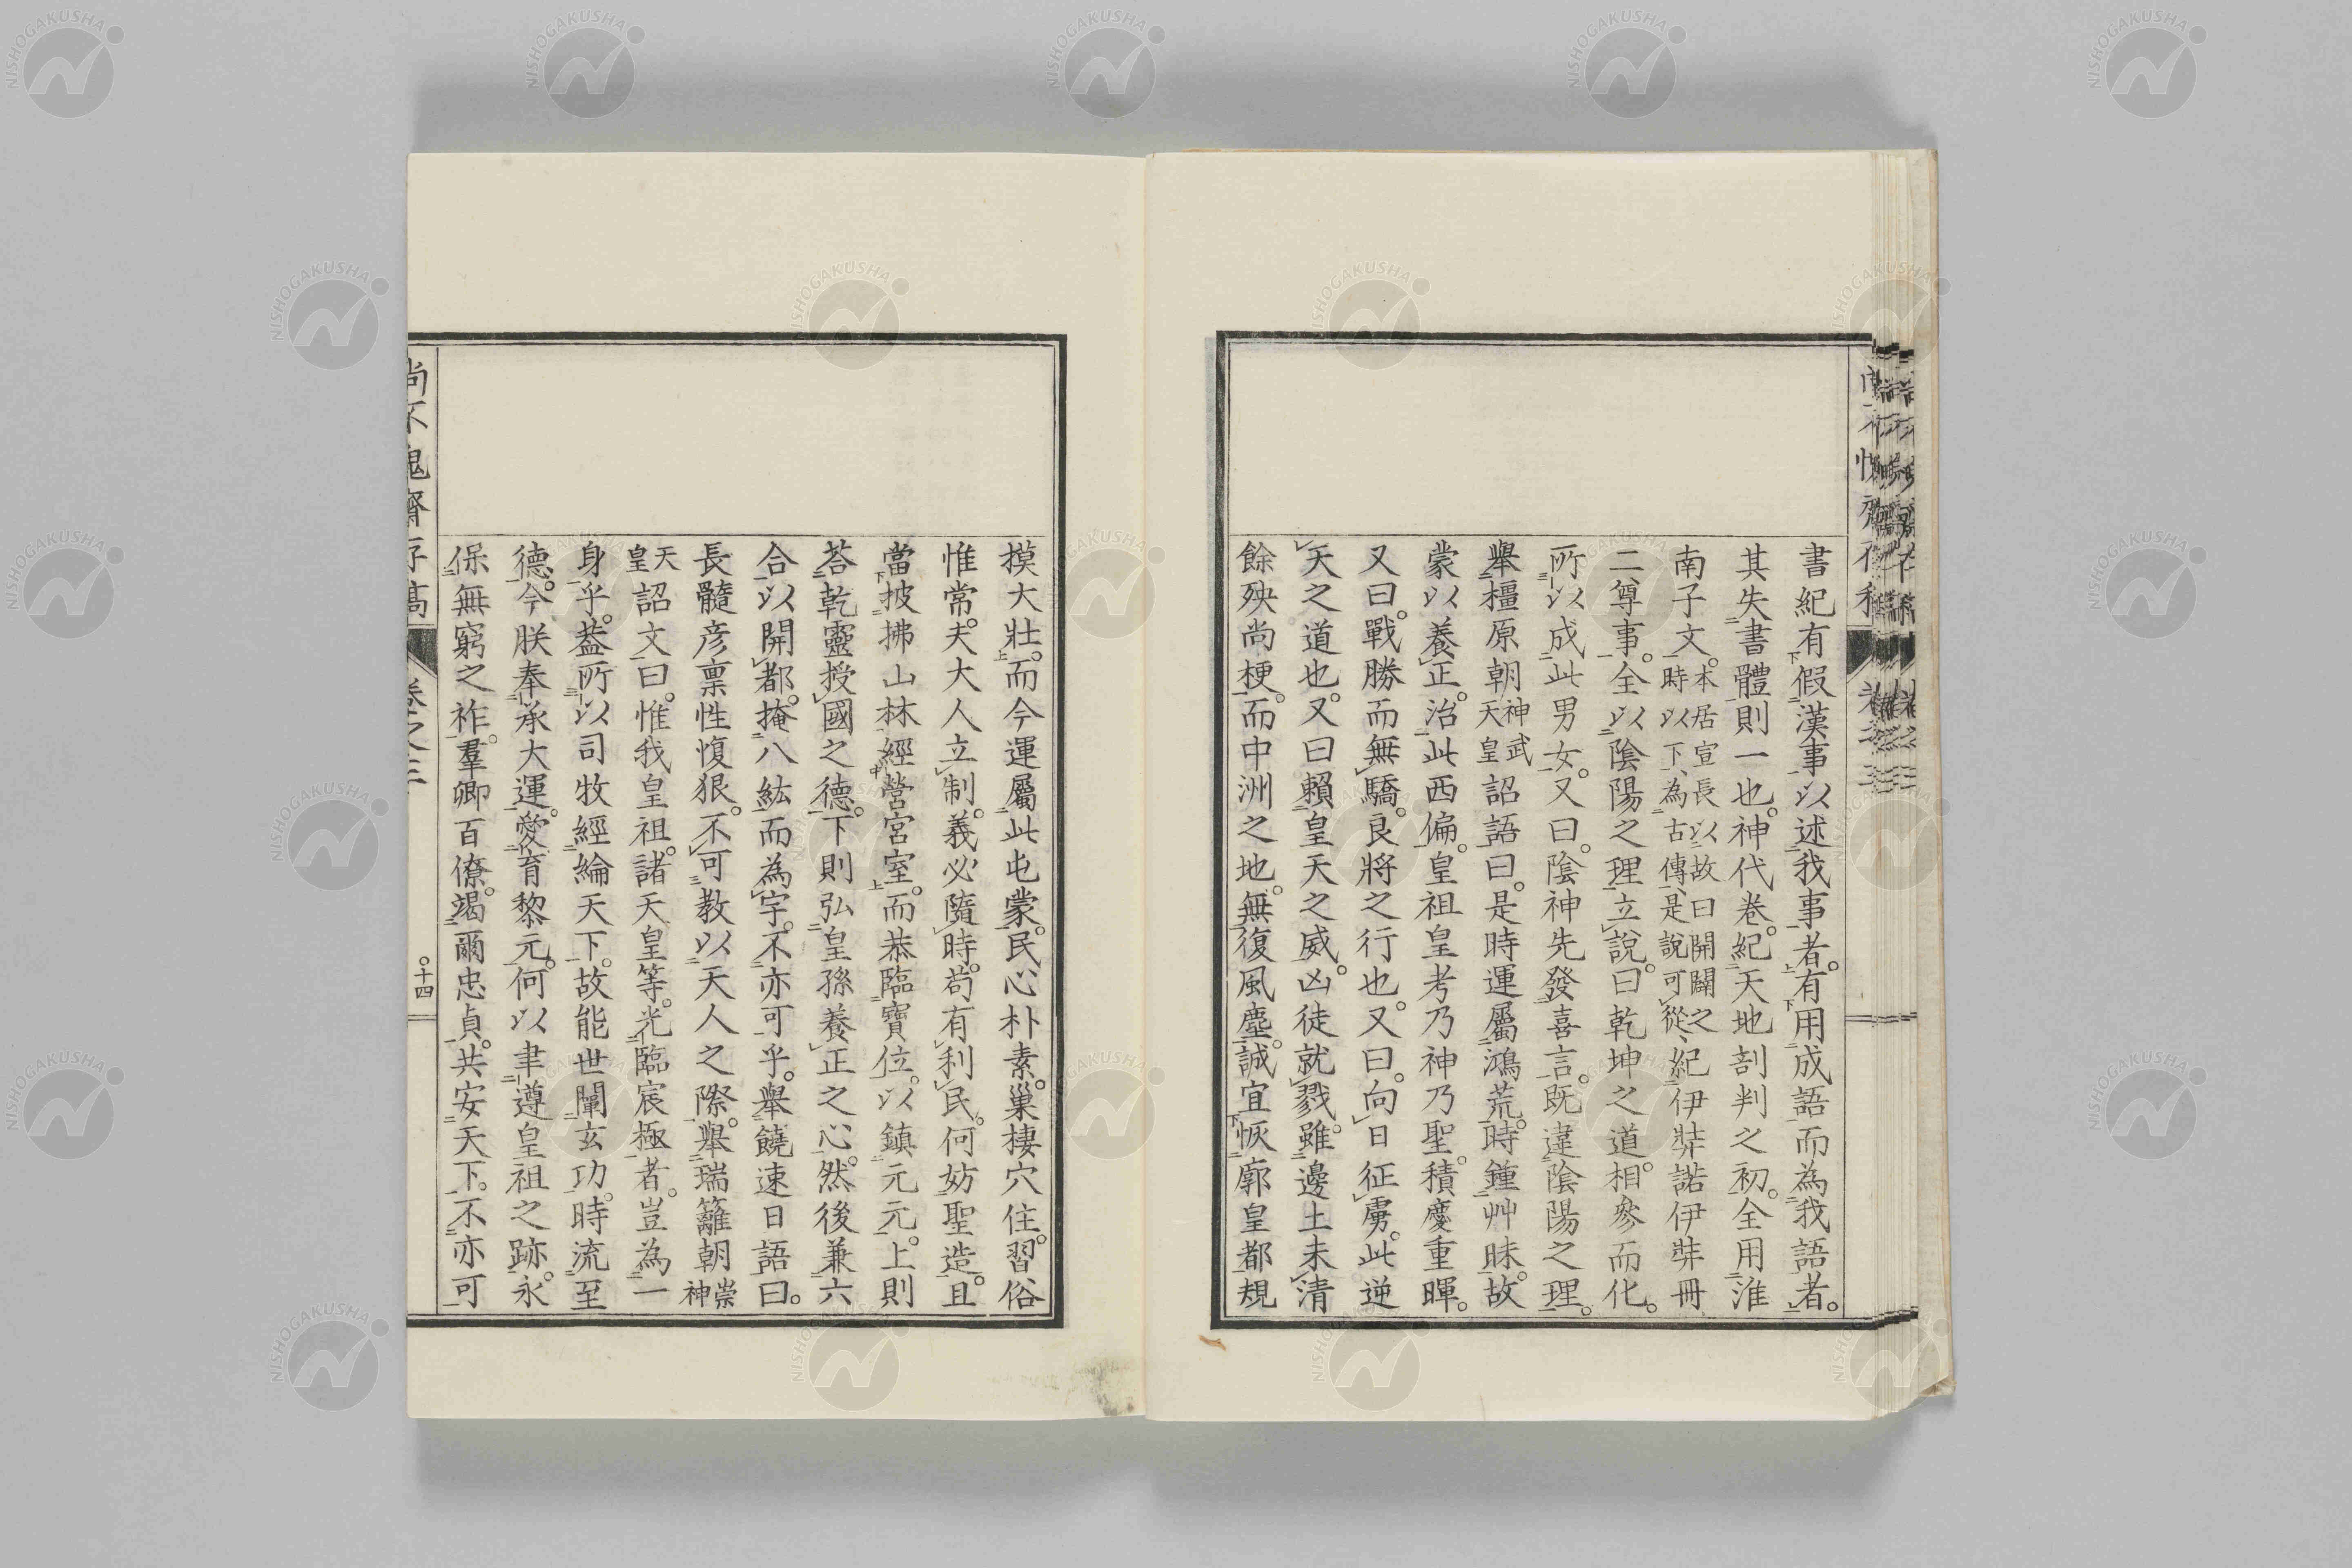 書紀有假漢事以述我事者。有用成語而為我語者。
其失書體則一也。神代卷。紀天地剖判之初。全用淮
南子文。本居宣長以故曰開闢之時以下、為古傳、是說可從、紀伊弉諾伊弉冊
二尊事。全以陰陽之理立說。曰乾坤之道相參而化。
所以成此男女。又曰。陰神先發喜言。既違陰陽之理。
舉橿原朝神武天皇詔語曰。是時運屬鴻荒。時鍾艸昧。故
蒙以養正。治此西偏。皇祖皇考乃神乃聖。積慶重暉。
又曰。戰勝而無驕。良將之行也。又曰。向日征虜。此逆
天之道也。又曰賴皇天之威。凶徒就戮。雖邊土未清
餘殃尚梗。而中洲之地。無復風塵。誠宜恢廓皇都規
摸大壯。而今運屬此屯蒙。民心朴素。巢棲穴住。習俗
惟常。夫大人立制。義必隨時。苟有利民。何妨聖造。且
當披拂山林經營宮室。而恭臨寶位。以鎮元元。上則
荅乾靈授國之德。下則弘皇孫養正之心。然後兼六
合以開都。掩八紘而為宇。不亦可乎。舉饒速日語曰。
長髓彥稟性愎狠。不可教以天人之際。舉瑞籬朝崇神
天皇詔文曰。惟我皇祖。諸天皇等。光臨宸極者。豈為一
身乎。葢所以司牧經綸天下。故能世闡玄功。時流至
德。今朕奉承大運。愛育黎元。何以聿遵皇祖之跡。永
保無窮之祚。羣卿百僚。竭爾忠貞。共安天下。不亦可
尚不愧齋存稾
卷之三
十四
NISHOGAKUSHA